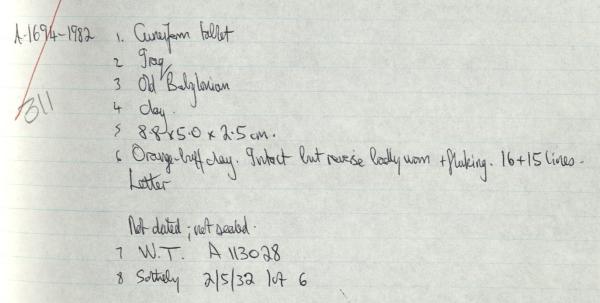 A·1694-1982 1. Cuneiform tablet
2 Iraq
3 Old Babylonian
311 4 clay.
5 8.8 x 5.0 x 2.5 cm.
6 Orange-buff clay. Intact but reverse badly worn + flaking. 16+15 lines.
Letter
Not dated; not sealed.
7 W.T. A 113028
8 Sotheby 2/5/32 lot 6